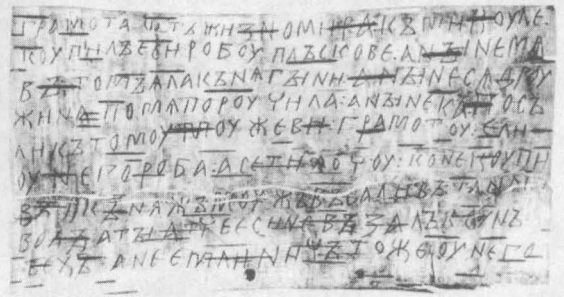 грамота ѿтъ жизномира къ микоуле
коупилъ еси робоу плъскове а ныне мѧ
въ томъ ѧла кънѧгыни а ныне сѧ дроу
жина по мѧ пороучила а ныне ка посъ
ли къ томоу моужеви грамотоу ели
оу него роба а се ти хочоу коне коупи
въ и кънѧжъ моужъ въсадивъ та на съ
воды а ты атче еси не възалъ коунъ
техъ а не емли ничъто же оу него